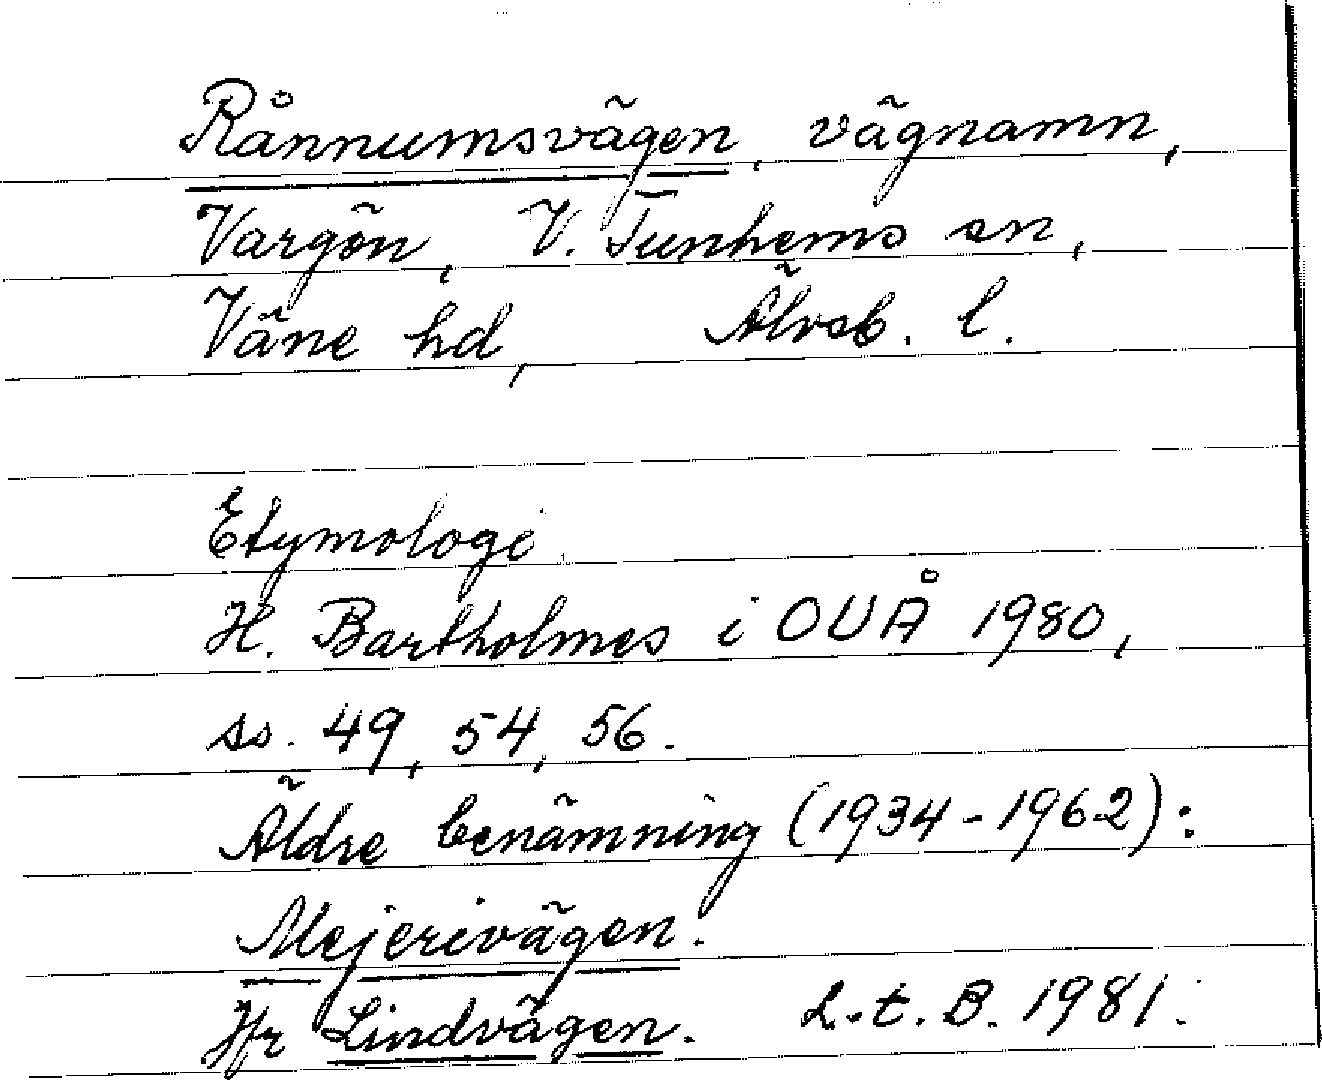 Rånnumsvägen, vägnamn,
Vargön, V. Tunhems sn,
Väne hd, Älvsb. l.
Etymologi
H. Bartholmes i OUÅ 1980,
ss. 49, 54, 56.
Äldre benämning (1934-1962):
Mejerivägen.
Jfr Lindvägen. L.t.B. 1981.